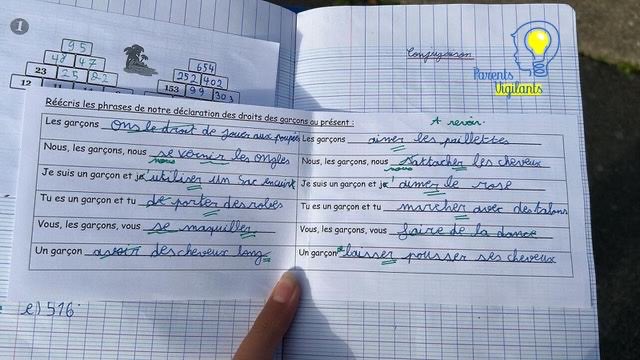 1
95
48 47
23 25 22
12
654
252 402
153 99 303
Conjugaison
Parents
Vigilants
A revoir.
Réécris les phrases de notre déclaration des droits des garçons au présent :
Les garçons ons le droit de jouer aux poupés
Les garçons aimer les paillettes
Nous, les garçons, nous se vernir les ongles
nous
Nous, les garçons, nous s'attacher les cheveux
nous
Je suis un garçon et j' utiliser un sac
Je suis un garçon et j' aimer le rose
Tu es un garçon et tu de porter des robes
Tu es un garçon et tu marcher avec des talons
Vous, les garçons, vous se maquiller
Vous, les garçons, vous faire de la dance
Un garçon avoir des cheveux long
Un garçon laisser pousser ses cheveux
e) 516